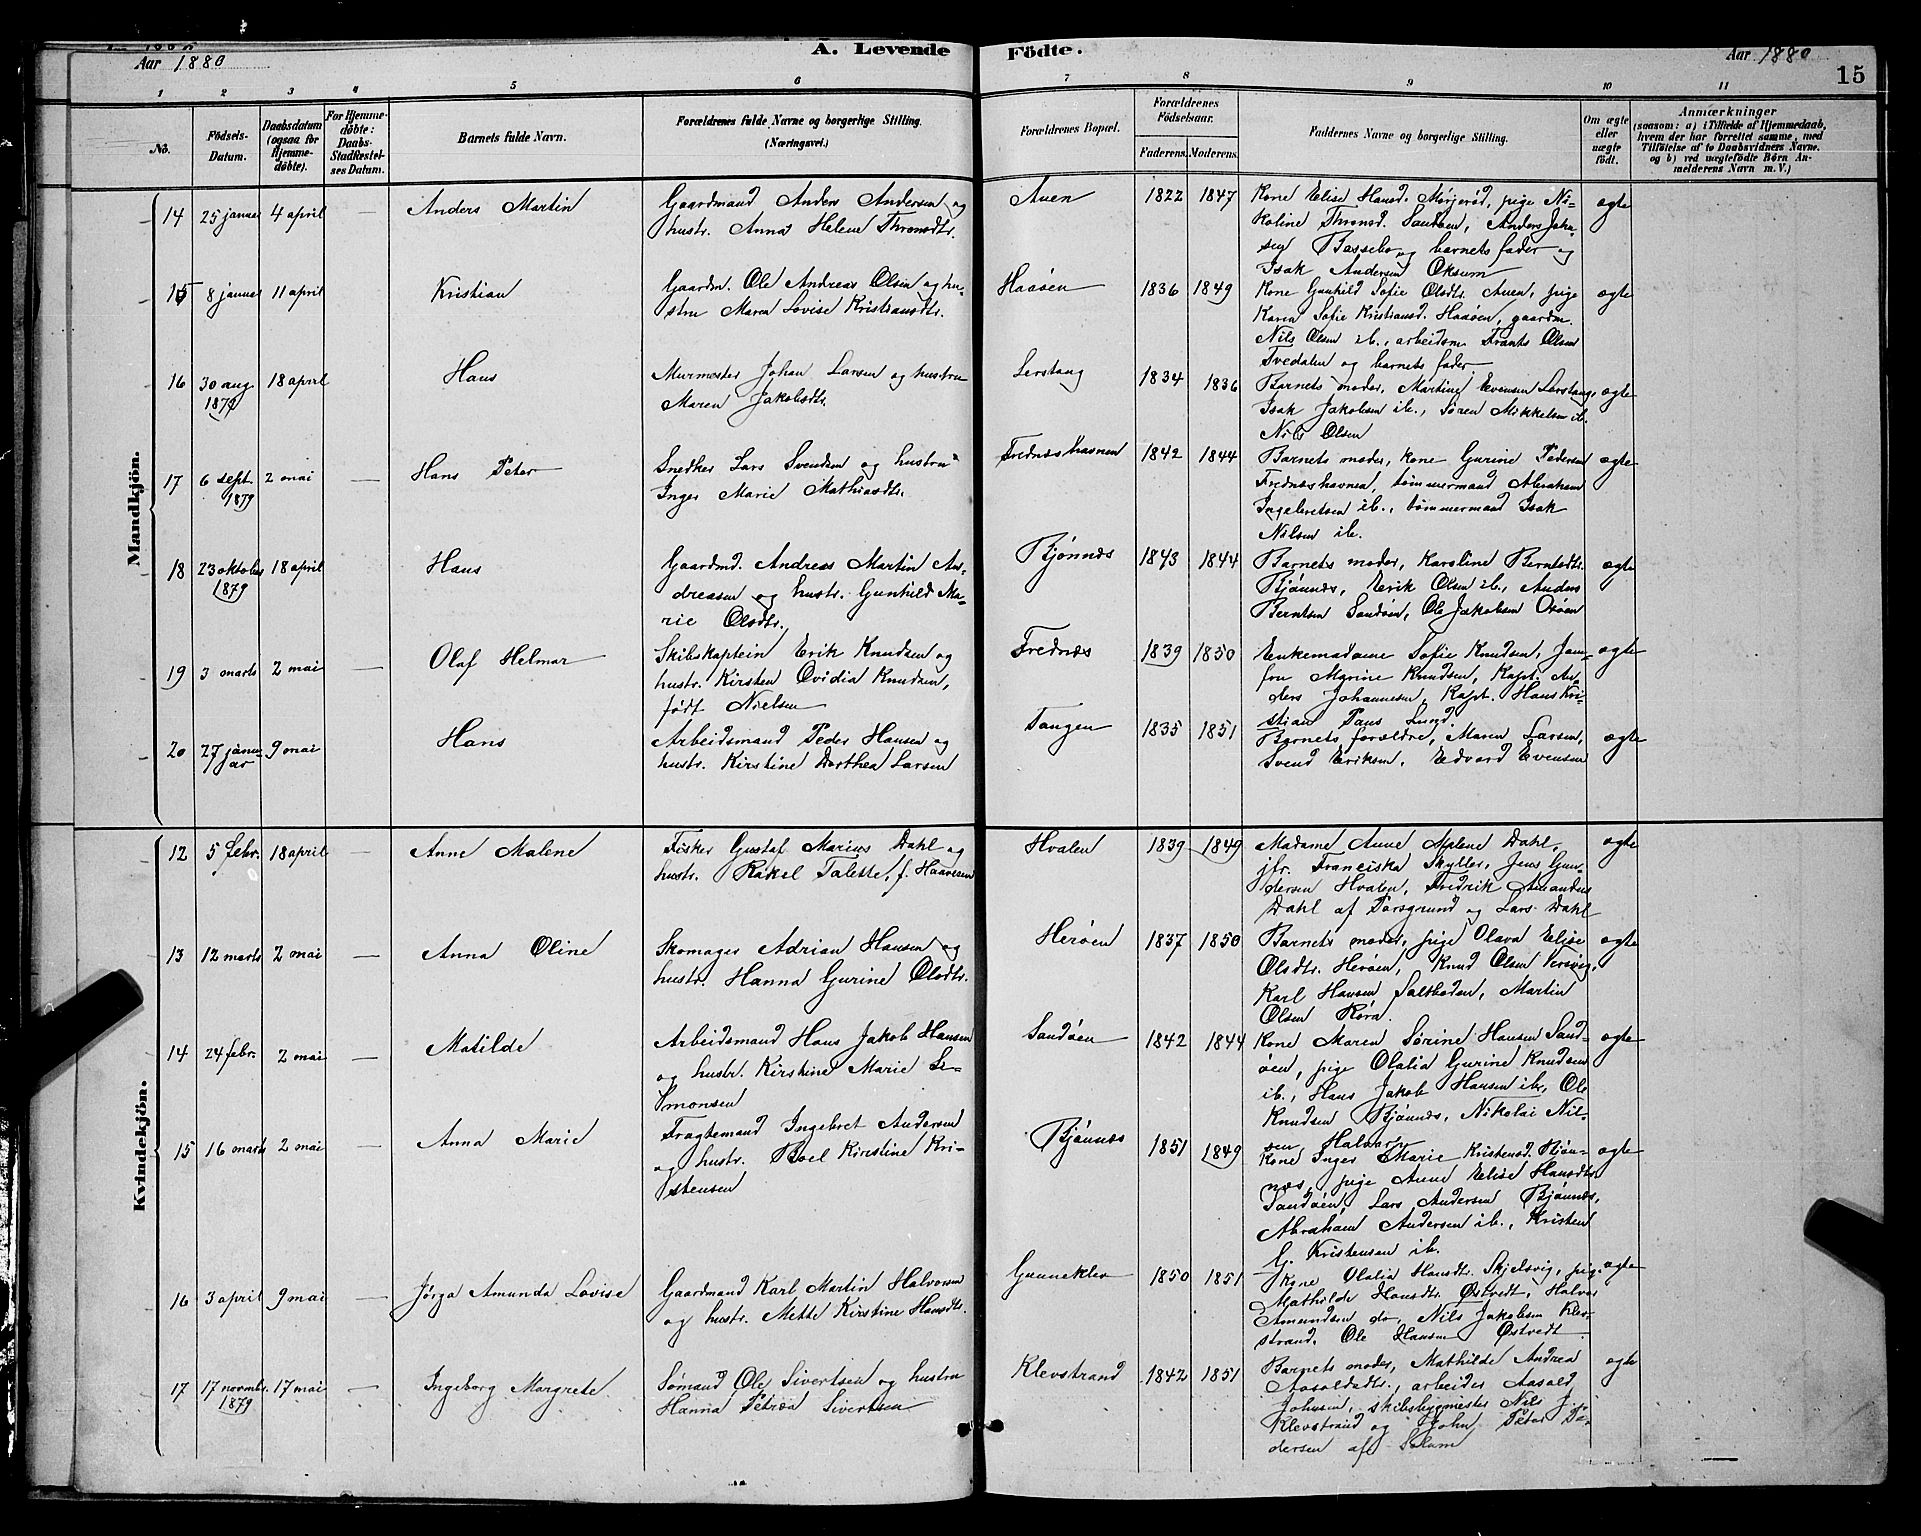 A. Levende Födte.
Aar 1880
Aar 1880
15
1 2 3 4 5 6 7 8 9 10 11
No.
Födsels-Datum.
Daabsdatum (ogsaa for Hjemmedöbte).
For Hjemmedöbte: Daabs-Stadfæstelses Datum.
Barnets fulde Navn.
Forældrenes fulde Navne og borgerlige Stilling. (Næringsvei.)
Forældrenes Bopæl.
Forældrenes Födselsaar.
Faderens.
Moderens.
Faddernes Navne og borgerlige Stilling.
Om ægte eller uægte födt.
Anmærkninger
(saasom: a) i Tilfælde af Hjemmedaab, hvem der har forrettet samme, med Tilföielse af to Daabsvidners Navne. og b) ved uægtefödte Börn Anmelderens Navn m. V.)
Mandkjön.
14 25 januar 4 april — Anders Martin
Gaardmand Anders Andersen og
hustr. Anna Helene Thronsdtr.
Auen 1822 1847
Kone Elise Hansd. Mørjerød, pige Ni-
koline Thronsd. Sandøen, Anders Joha-
sen Bassebo og barnets fader og
Isak Andersen Oksum
ægte
15 8 januar 11 april Kristian
Gaardm. Ole Andreas Olsen og hu-
stru Maren Lovise Kristiansdtr.
Haaøen 1836 1849
Kone Gunhild Sofie Olsdtr. Auen, pige
Karen Sofie Kristiansd. Haaøen, gaardm.
Nils Olsen ib., arbeidsm. Frants Olsen
Tvedalen og barnets fader
ægte
16 30 aug. 1879 18 april Hans
Murmester Johan Larsen og hustru
Maren Jakobsdtr.
Lerstang 1834 1836
Barnets moder, Martine Evensen Lerstang,
Isak Jakobsen ib., Søren Mikkelsen ib.
Nils Olsen
ægte
17 6 sept. 1879 2 mai — Hans Peter
Snedker Lars Svendsen og hustru
Inger Marie Mathiasdtr.
Frednæshavnen 1842 1844
Barnets moder, kone Gurine Pedersen
Frednæshavnen, tømmermand Abraham
Ingebretsen ib., tømmermand Isak
Nilsen ib.
ægte
18 23 oktober 1879 18 april — Hans
Gaardmd. Andreas Martin An-
dreasen og hustr. Gunhild Ma-
rie Olsdtr.
Bjønnæs 1843 1844
Barnets moder, Karoline Berntsdtr.
Bjønnæs, Erik Olsen ib., Anders
Berntsen Sandøen, Ole Jakobsen Oxøen
ægte
19 3 marts 2 mai — Olaf Helmar
Skibskaptein Erik Knudsen og
hustr. Kirsten Ovidia Knudsen,
født Nielsen
Frednæs 1839 1850
Enkemadame Sofie Knudsen, Jom-
fru Marine Knudsen, Kapt. An-
ders Johannesen, Kapt. Hans Kri-
stian Paus Lund.
ægte
20 27 januar 9 mai — Hans
Arbeidsmand Peder Hansen og
hustr. Kirstine Dorthea Larsen
Tangen 1835 1851
Barnets forældre, Maren Larsen,
Svend Eriksen, Edvard Evensen
ægte
Kvindekjön.
12 5 febr. 18 april — Anne Malene
Fisker Gustaf Marius Dahl og
hustr. Rakel Talette, f. Haavesen
Hvalen 1839 1849
Madame Anne Malene Dahl,
jfr. Franciska Skyller, Jens Gun-
dersen Hvalen, Fredrik Amandus
Dahl af Porsgrund og Lars Dahl
ægte
13 12 marts 2 mai — Anna Oline
Skomager Adrian Hansen og
hustr. Hanna Gurine Olsdtr.
Herøen 1837 1850
Barnets moder, pige Olava Elise
Olsdtr. Herøen, Knud Olsen Versvig,
Karl Hansen Saltboden, Martin
Olsen Røra.
ægte
14 24 febr. 2 mai — Matilde
Arbeidsmand Hans Jakob Hansen
og hustr. Kirstine Marie Si-
monsen
Sandøen 1842 1844
Kone Maren Sørine Hansen Sand-
øen, pige Olalia Gurine Knudsen
ib., Hans Jakob Hansen ib., Ole
Knudsen Bjønnes, Nikolai Nil-
sen
ægte
15 16 marts 2 mai — Anna Marie
Fragtemand Ingebret Andersen
og hustr. Boel Kirstine Kri-
stensen
Bjønnæs 1851 1849
Kone Inger Marie Kristensd. Bjøn-
næs, pige Anne Elise Hansdtr.
Sandøen, Lars Andersen Bjønnæs,
Abraham Andersen ib., Kristen
G. Kristensen ib.
ægte
16 3 april 9 mai — Jørga Amunda Lovise
Gaardmand Karl Martin Halvorsen
og hustr. Mette Kirstine Hansdtr.
Gunneklev 1850 1851
Kone Olalia Hansdtr. Skjelsvig, pige
Mathilde Hansdtr. Østvedt, Halvor
Amundsen do, Nils Jakobsen Klev-
strand, Ole Hansen Østvedt
ægte
17 17 novmbr. 1879 17 mai — Ingeborg Margrete
Sømand Ole Sivertsen og hustru
Hanna Petrea Sivertsen
Klevstrand 1842 1851
Barnets moder, Mathilde Andrea
Aasoldsdtr., arbeider Aasold
Johnsen, skibsbygmester Nils J.
Klevstrand og John Peter Pe-
dersen af Solum
ægte